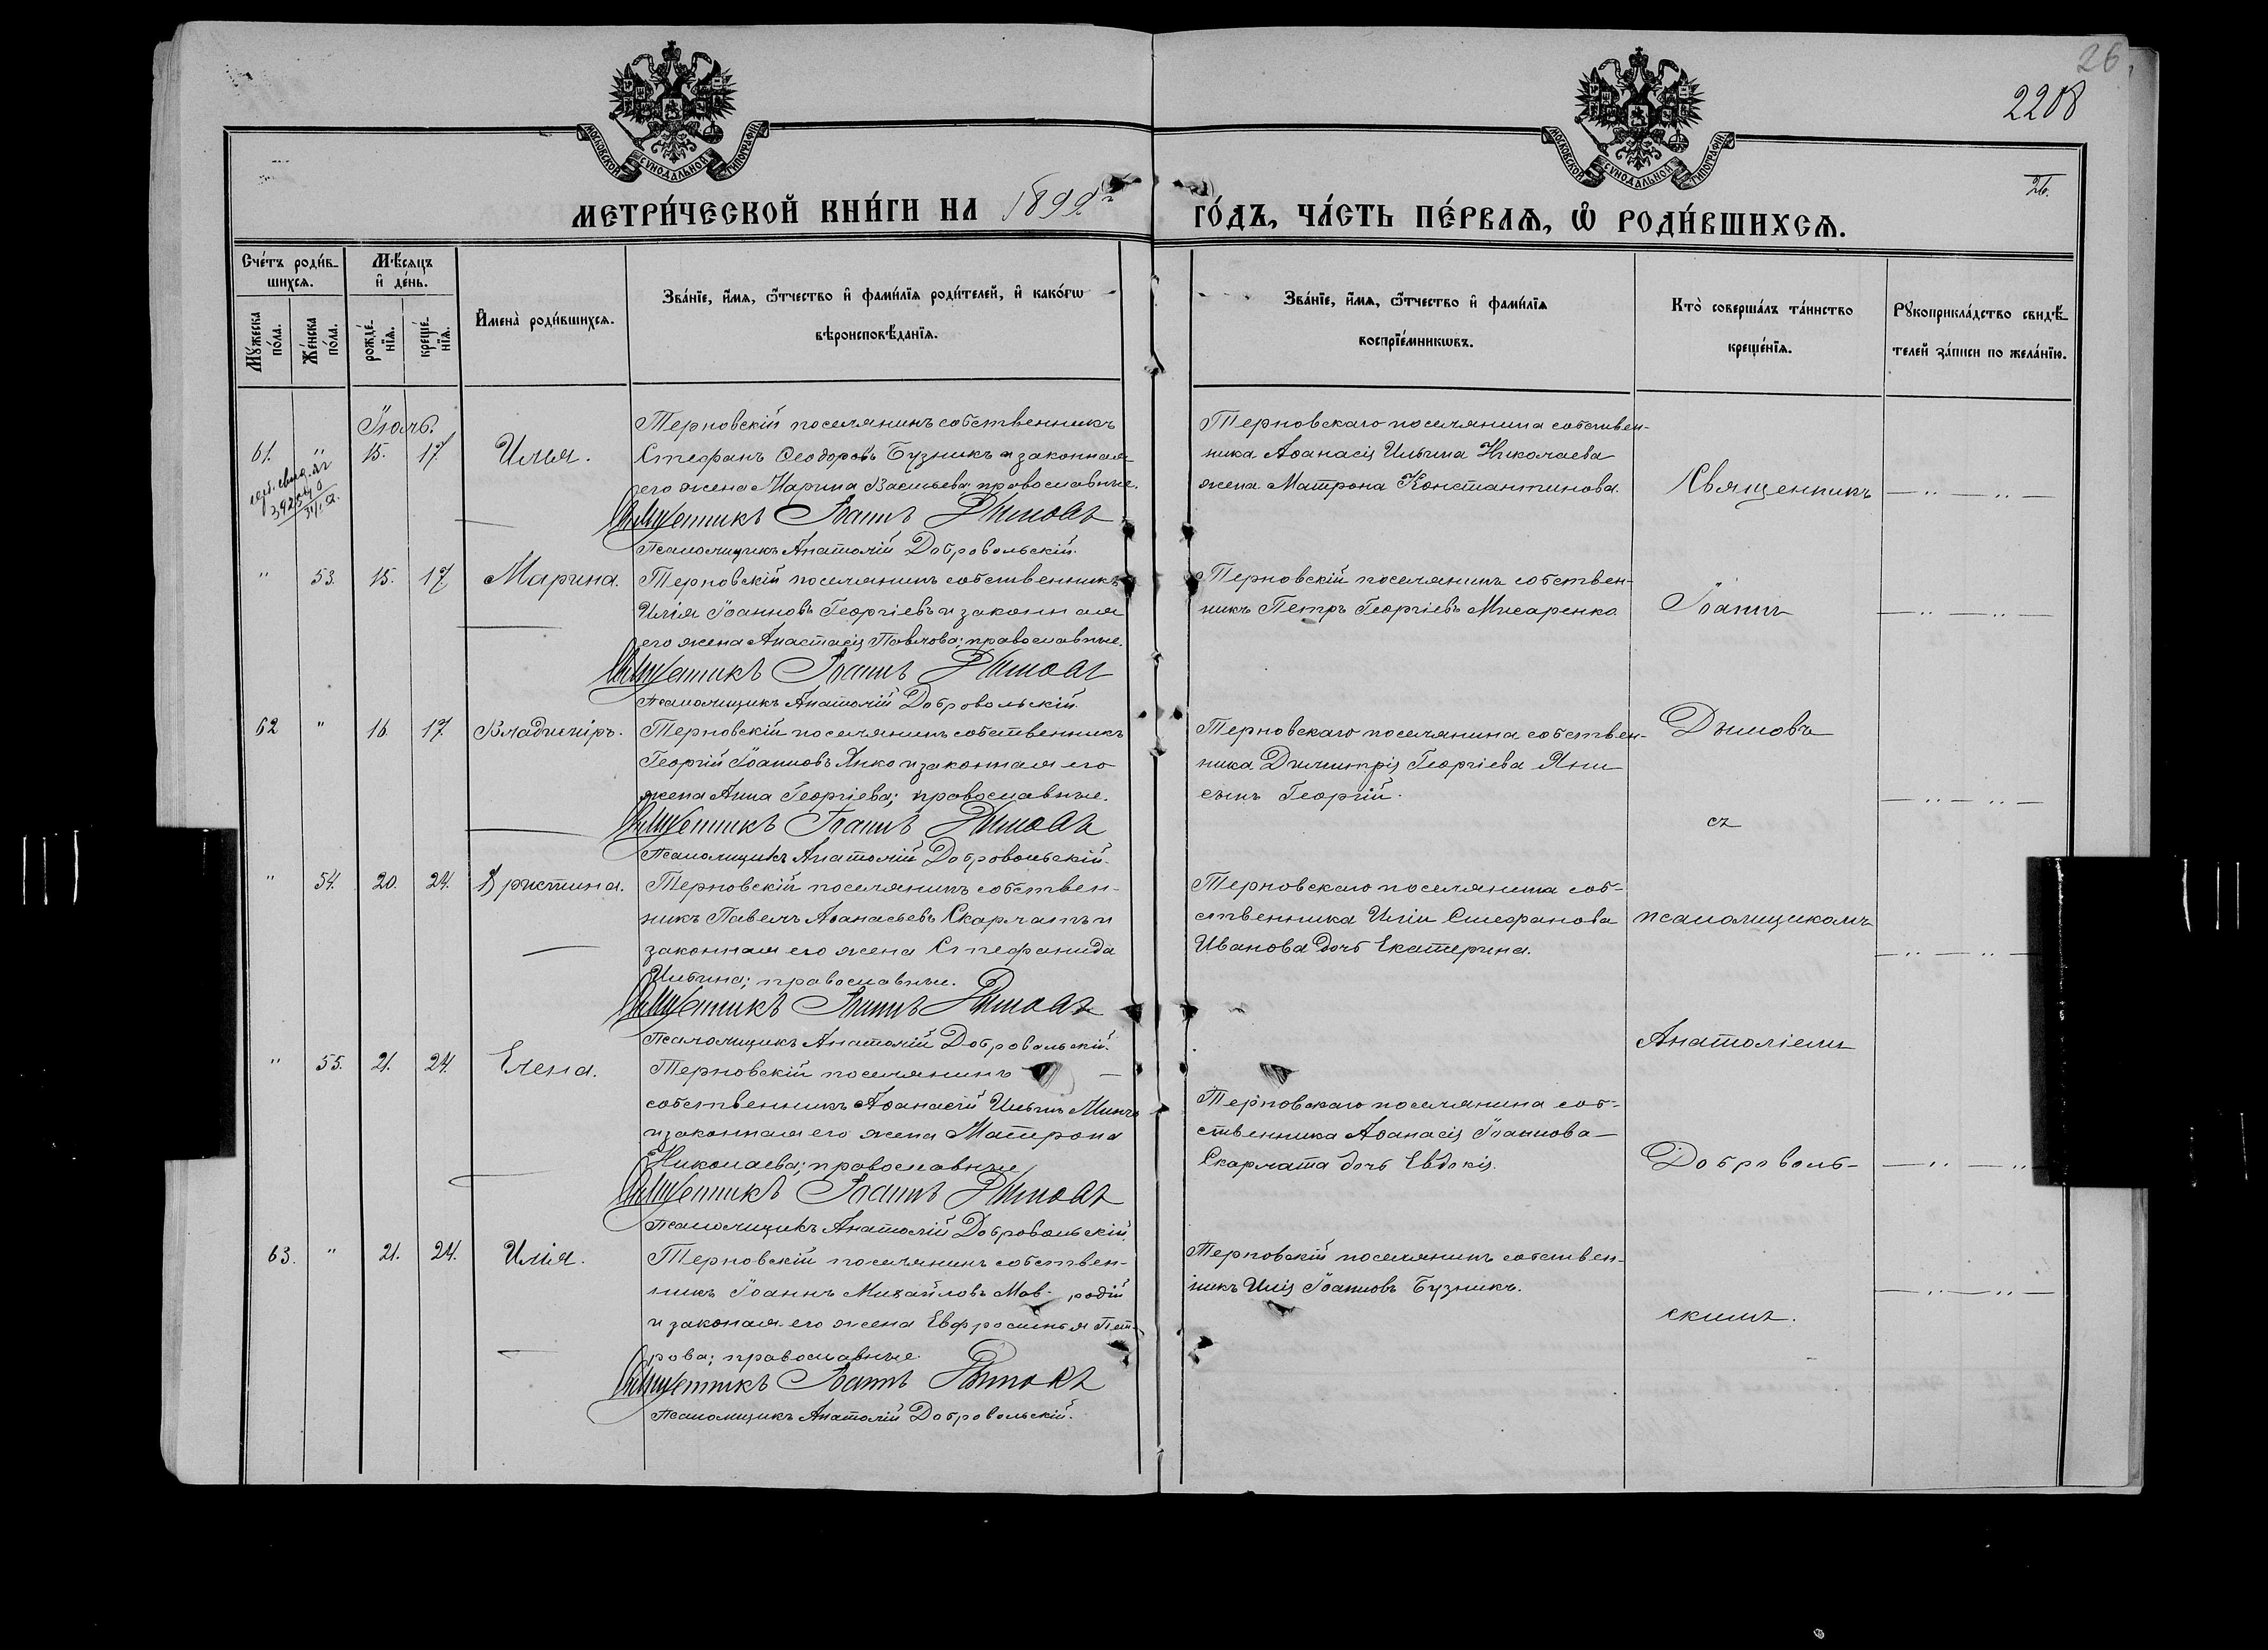 26
2208
26.
МОСКОВСКОЙ СѴНОДАЛЬНОЙ ТИПОГРАФІИ
МОСКОВСКОЙ СѴНОДАЛЬНОЙ ТИПОГРАФІИ
МЕТРИ́ЧЕСКОЙ КНИ́ГИ НА 1899 г. ГО́ДЪ, ЧА́СТЬ ПЕ́РВАѦ, Ѡ҆ РОДИ́ВШИХСѦ.
Сче́тъ роди́в-
шихсѧ.
Мꙋ́жеска по́ла.
Же́нска по́ла.
Мѣ́сѧцъ
и҆ де́нь.
рожде́-нїѧ.
креще́-нїѧ.
И҆мена̀ роди́вшихсѧ.
Зва́нїе, и҆́мѧ, ѻ҆́тчество и҆ фами́лїѧ роди́телей, и҆ како́гѡ
вѣроисповѣ́данїѧ.
Зва́нїе, и҆́мѧ, ѻ҆́тчество и҆ фами́лїѧ
воспрїе́мникѡвъ.
Кто̀ соверша́лъ та́инство
креще́нїѧ.
Рꙋкоприкла́дство свидѣ́-
телей за́писи по жела́нїю.
Іюль.
61. " 15. 17. Илья.
Терновскій поселянинъ собственникъ
Стефанъ Ѳеодоровъ Бузникъ и законная
его жена Марина Васильева; православные.
Священникъ Іоаннъ Дымовъ
Псаломщикъ Анатолій Добровольскій.
Терновскаго поселянина собствен-
ника Аѳанасія Ильина Николаева
жена Матрона Константинова.
Священникъ
" 53. 15. 17. Марина.
Терновскій поселянинъ собственникъ
Илія Іоанновъ Георгіевъ и законная
его жена Анастасія Павлова; православные.
Священникъ Іоаннъ Дымовъ
Псаломщикъ Анатолій Добровольскій.
Терновскій поселянинъ собствен-
никъ Петръ Георгіевъ Мисаренко.
Іоаннъ
62 " 16 17 Владиміръ.
Терновскій поселянинъ собственникъ
Георгій Іоанновъ Янко и законная его
жена Анна Георгіева; православные.
Священникъ Іоаннъ Дымовъ
Псаломщикъ Анатолій Добровольскій.
Терновскаго поселянина собствен-
ника Димитрія Георгіева Яни
сынъ Георгій.
Дымовъ
съ
" 54. 20. 24. Христина.
Терновскій поселянинъ собствен-
никъ Павелъ Аѳанасьевъ Скарлатъ и
законная его жена Стефанида
Ильина; православные.
Священникъ Іоаннъ Дымовъ
Псаломщикъ Анатолій Добровольскій.
Терновскаго поселянина соб-
ственника Иліи Стефанова
Иванова дочь Екатерина.
псаломщикомъ
Анатоліемъ
" 55. 21. 24. Елена.
Терновскій поселянинъ —
собственникъ Аѳанасій Ильинъ Минчъ
и законная его жена Матрона
Николаева; православные
Священникъ Іоаннъ Дымовъ
Псаломщикъ Анатолій Добровольскій.
Терновскаго поселянина соб-
ственника Аѳанасія Іоаннова
Скарлата дочь Евдокія.
Доброволь-
63. " 21. 24. Илія.
Терновскій поселянинъ собствен-
никъ Іоаннъ Михайловъ Мав- родій
и законая его жена Евфросинья Пет-
рова; православные.
Священникъ Іоаннъ Дымовъ
Псаломщикъ Анатолій Добровольскій.
Терновскій поселянинъ собствен-
никъ Илія Іоанновъ Бузникъ.
скимъ.